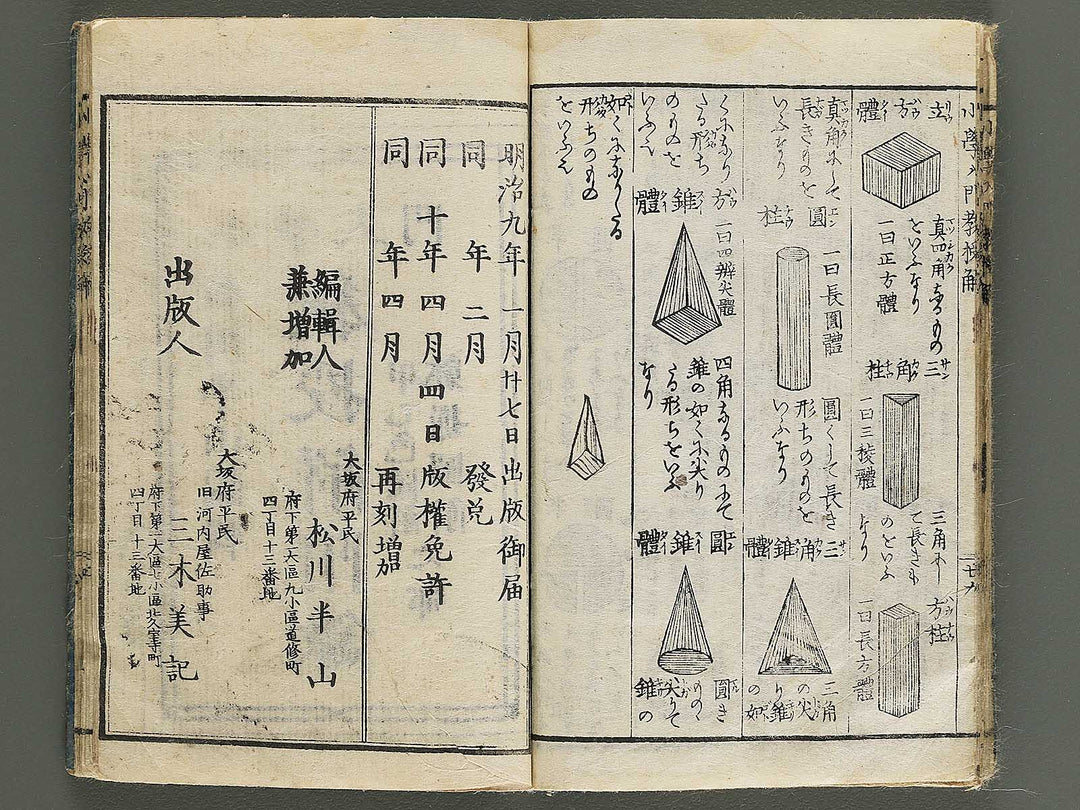 小學入門教授解
立方體
真四角なるもの
をいふなり
一曰正方體
三角柱
一曰三稜體
三角にし
て長きも
のをいふ
なり
方柱
一曰長方體
真角にして
長きものを
いふなり
圓柱
一曰長圓體
圓くして長き
形ちのものを
いふなり
三角錐體
三角
の尖
り錐
の如
くになり
たる形ち
のものを
いふ
方錐體
一曰四瓣尖體
四角なるものにて
錐の如くに尖り
たる形ちをいふ
なり
圓錐體
圓き
ものゝ
尖りて
錐の
如くになりたる
形ちのもの
をいふ
明治九年一月廿七日出版御届
同年二月發兌
同十年四月四日版權免許
同年四月再刻増加
編輯人
兼増加
大坂府平民
松川半山
府下第一大區九小區道修町
四丁目十三番地
出版人
大坂府平民
旧河内屋佐助事
二木美記
府下第二大區七小區北久宝寺町
四丁目十三番地